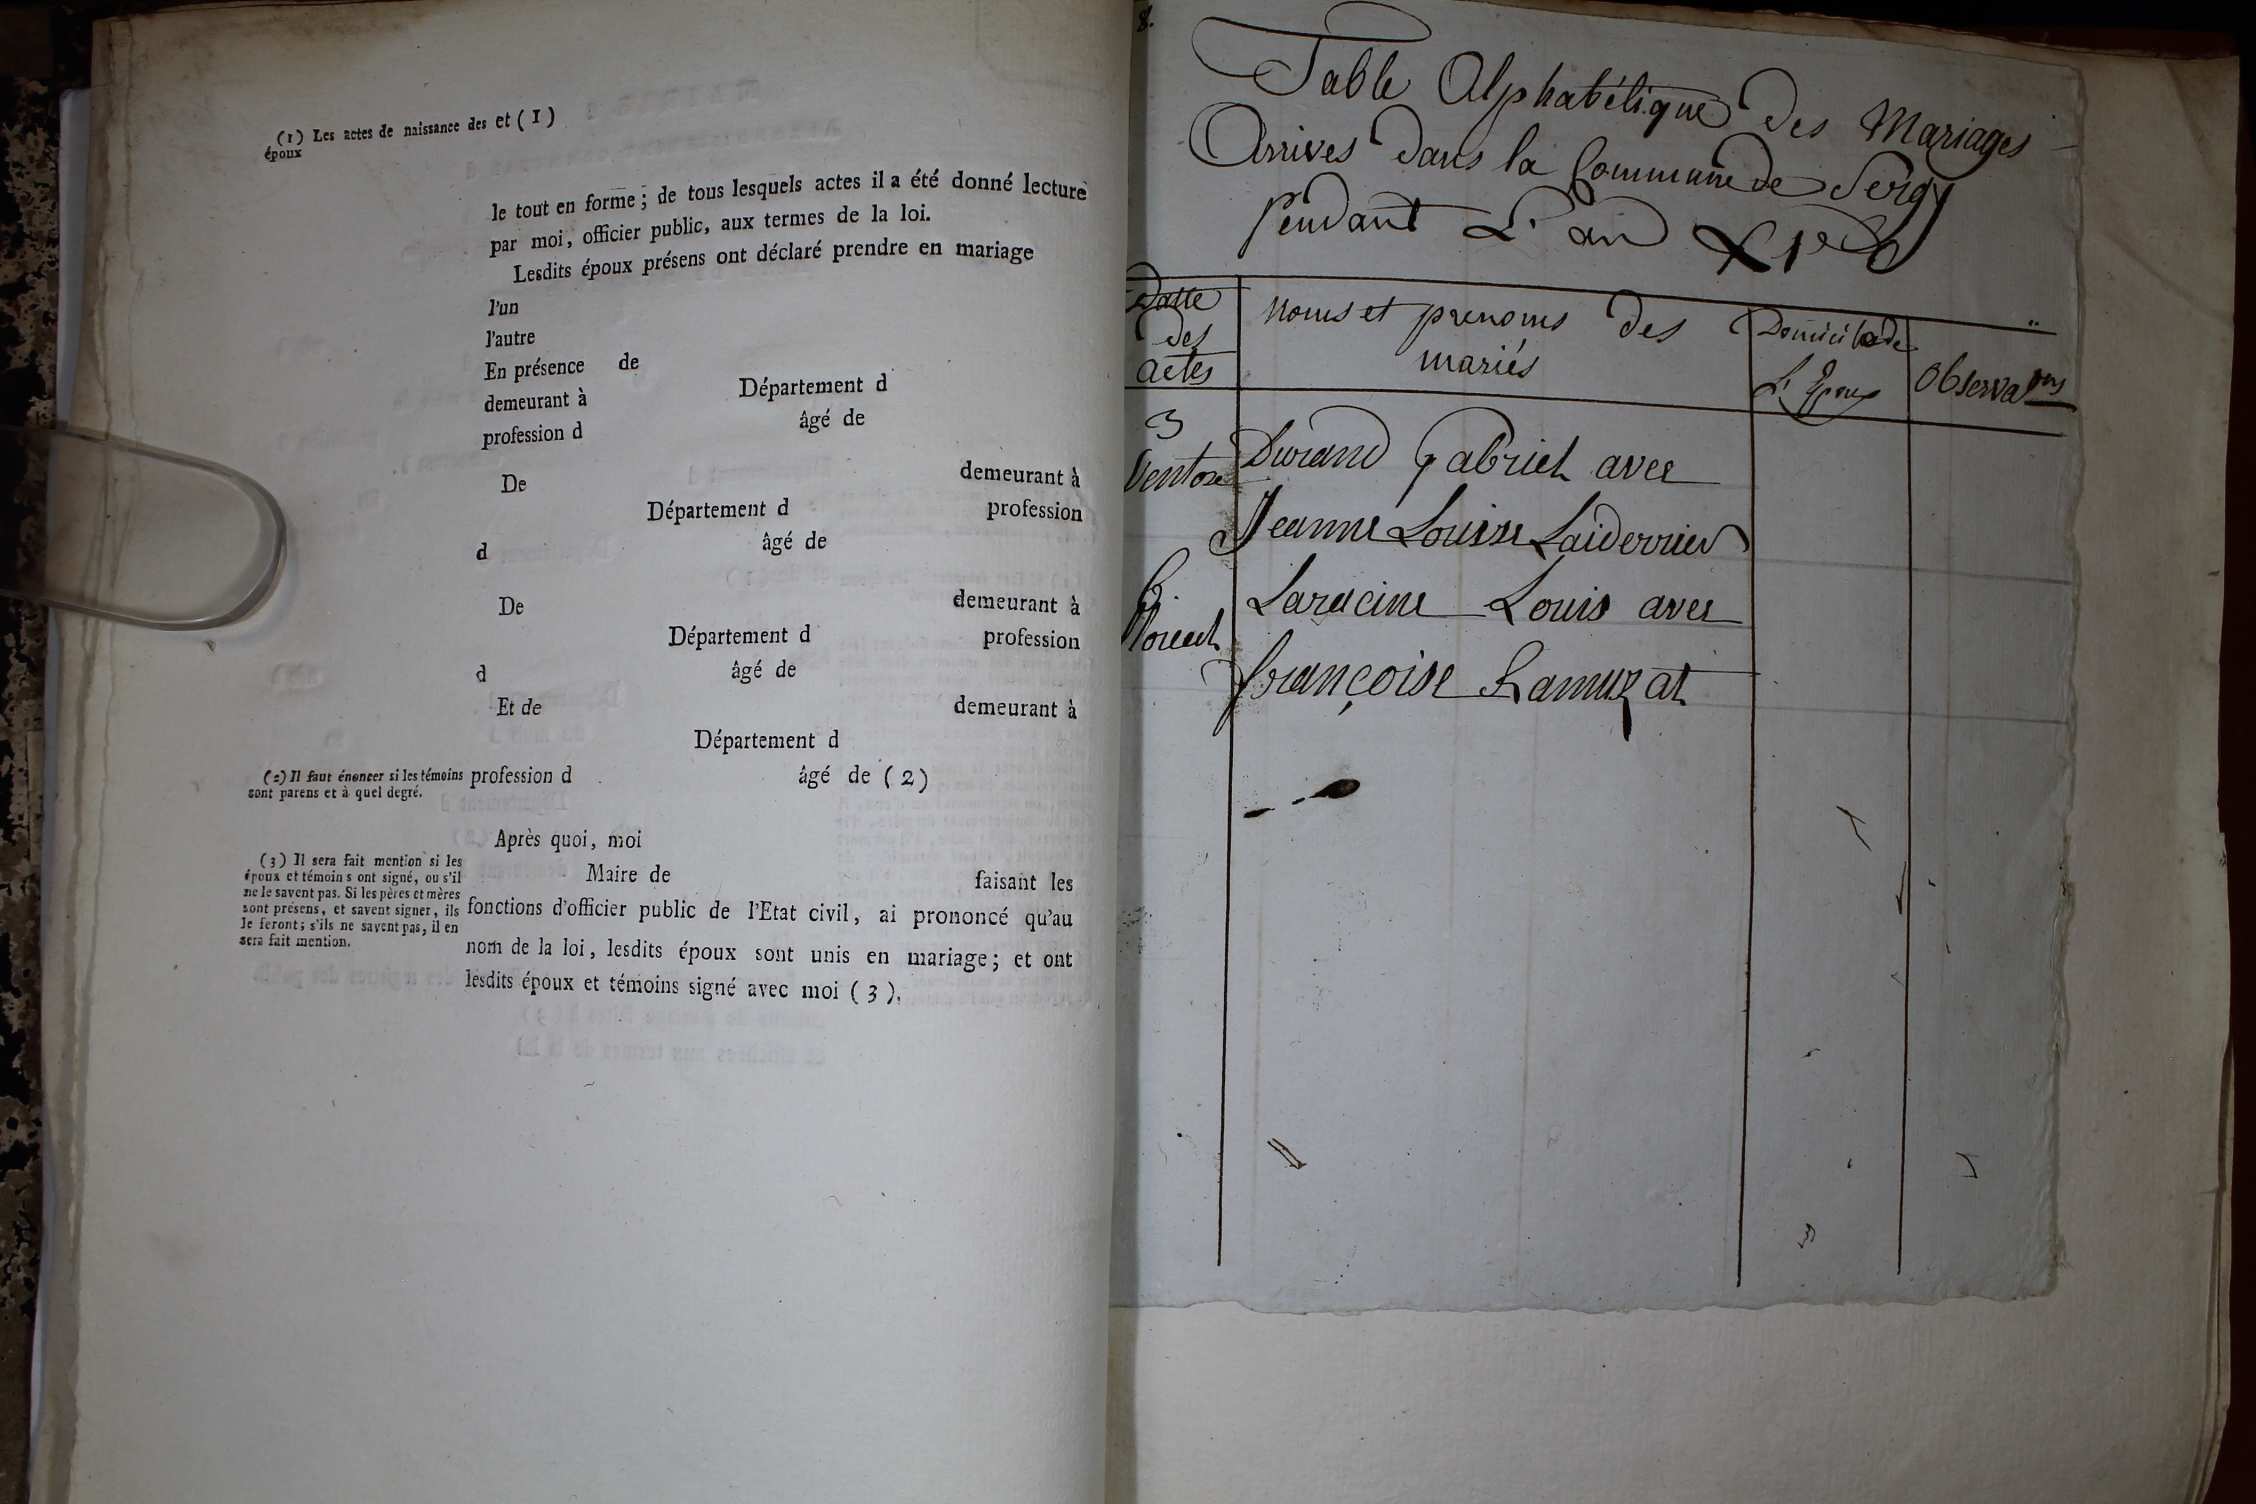 (1) Les actes de naissance des et (1)
époux
le tout en forme ; de tous lesquels actes il a été donné lecture
par moi, officier public, aux termes de la loi.
Lesdits époux présens ont déclaré prendre en mariage
l'un
l'autre
En présence de
demeurant à Département d
profession d âgé de
De demeurant à
Département d profession
d âgé de
De demeurant à
Département d profession
d âgé de
Et de demeurant à
Département d
(2) Il faut énoncer si les témoins
sont parens et à quel degré.
profession d âgé de (2)
Après quoi, moi
Maire de faisant les
fonctions d'officier public de l'Etat civil, ai prononcé qu'au
nom de la loi, lesdits époux sont unis en mariage; et ont
lesdits époux et témoins signé avec moi (3).
(3) Il sera fait mention si les
époux et témoins ont signé, ou s'il
ne le savent pas. Si les pères et mères
sont présens, et savent signer, ils
le feront; s'ils ne savent pas, il en
sera fait mention.
8.
Table Alphabétique des Mariages
Arrives dans la Commune de Sergy
pendant L'an XIe
Datte
des
actes
Noms et prenoms des
mariés
Domicile de
L'Epoux
Observaons
3
Ventose
Durand gabriel avec
Jeanne Louise Laiderrier
Laracine Louis avec
françoise Ramuzat